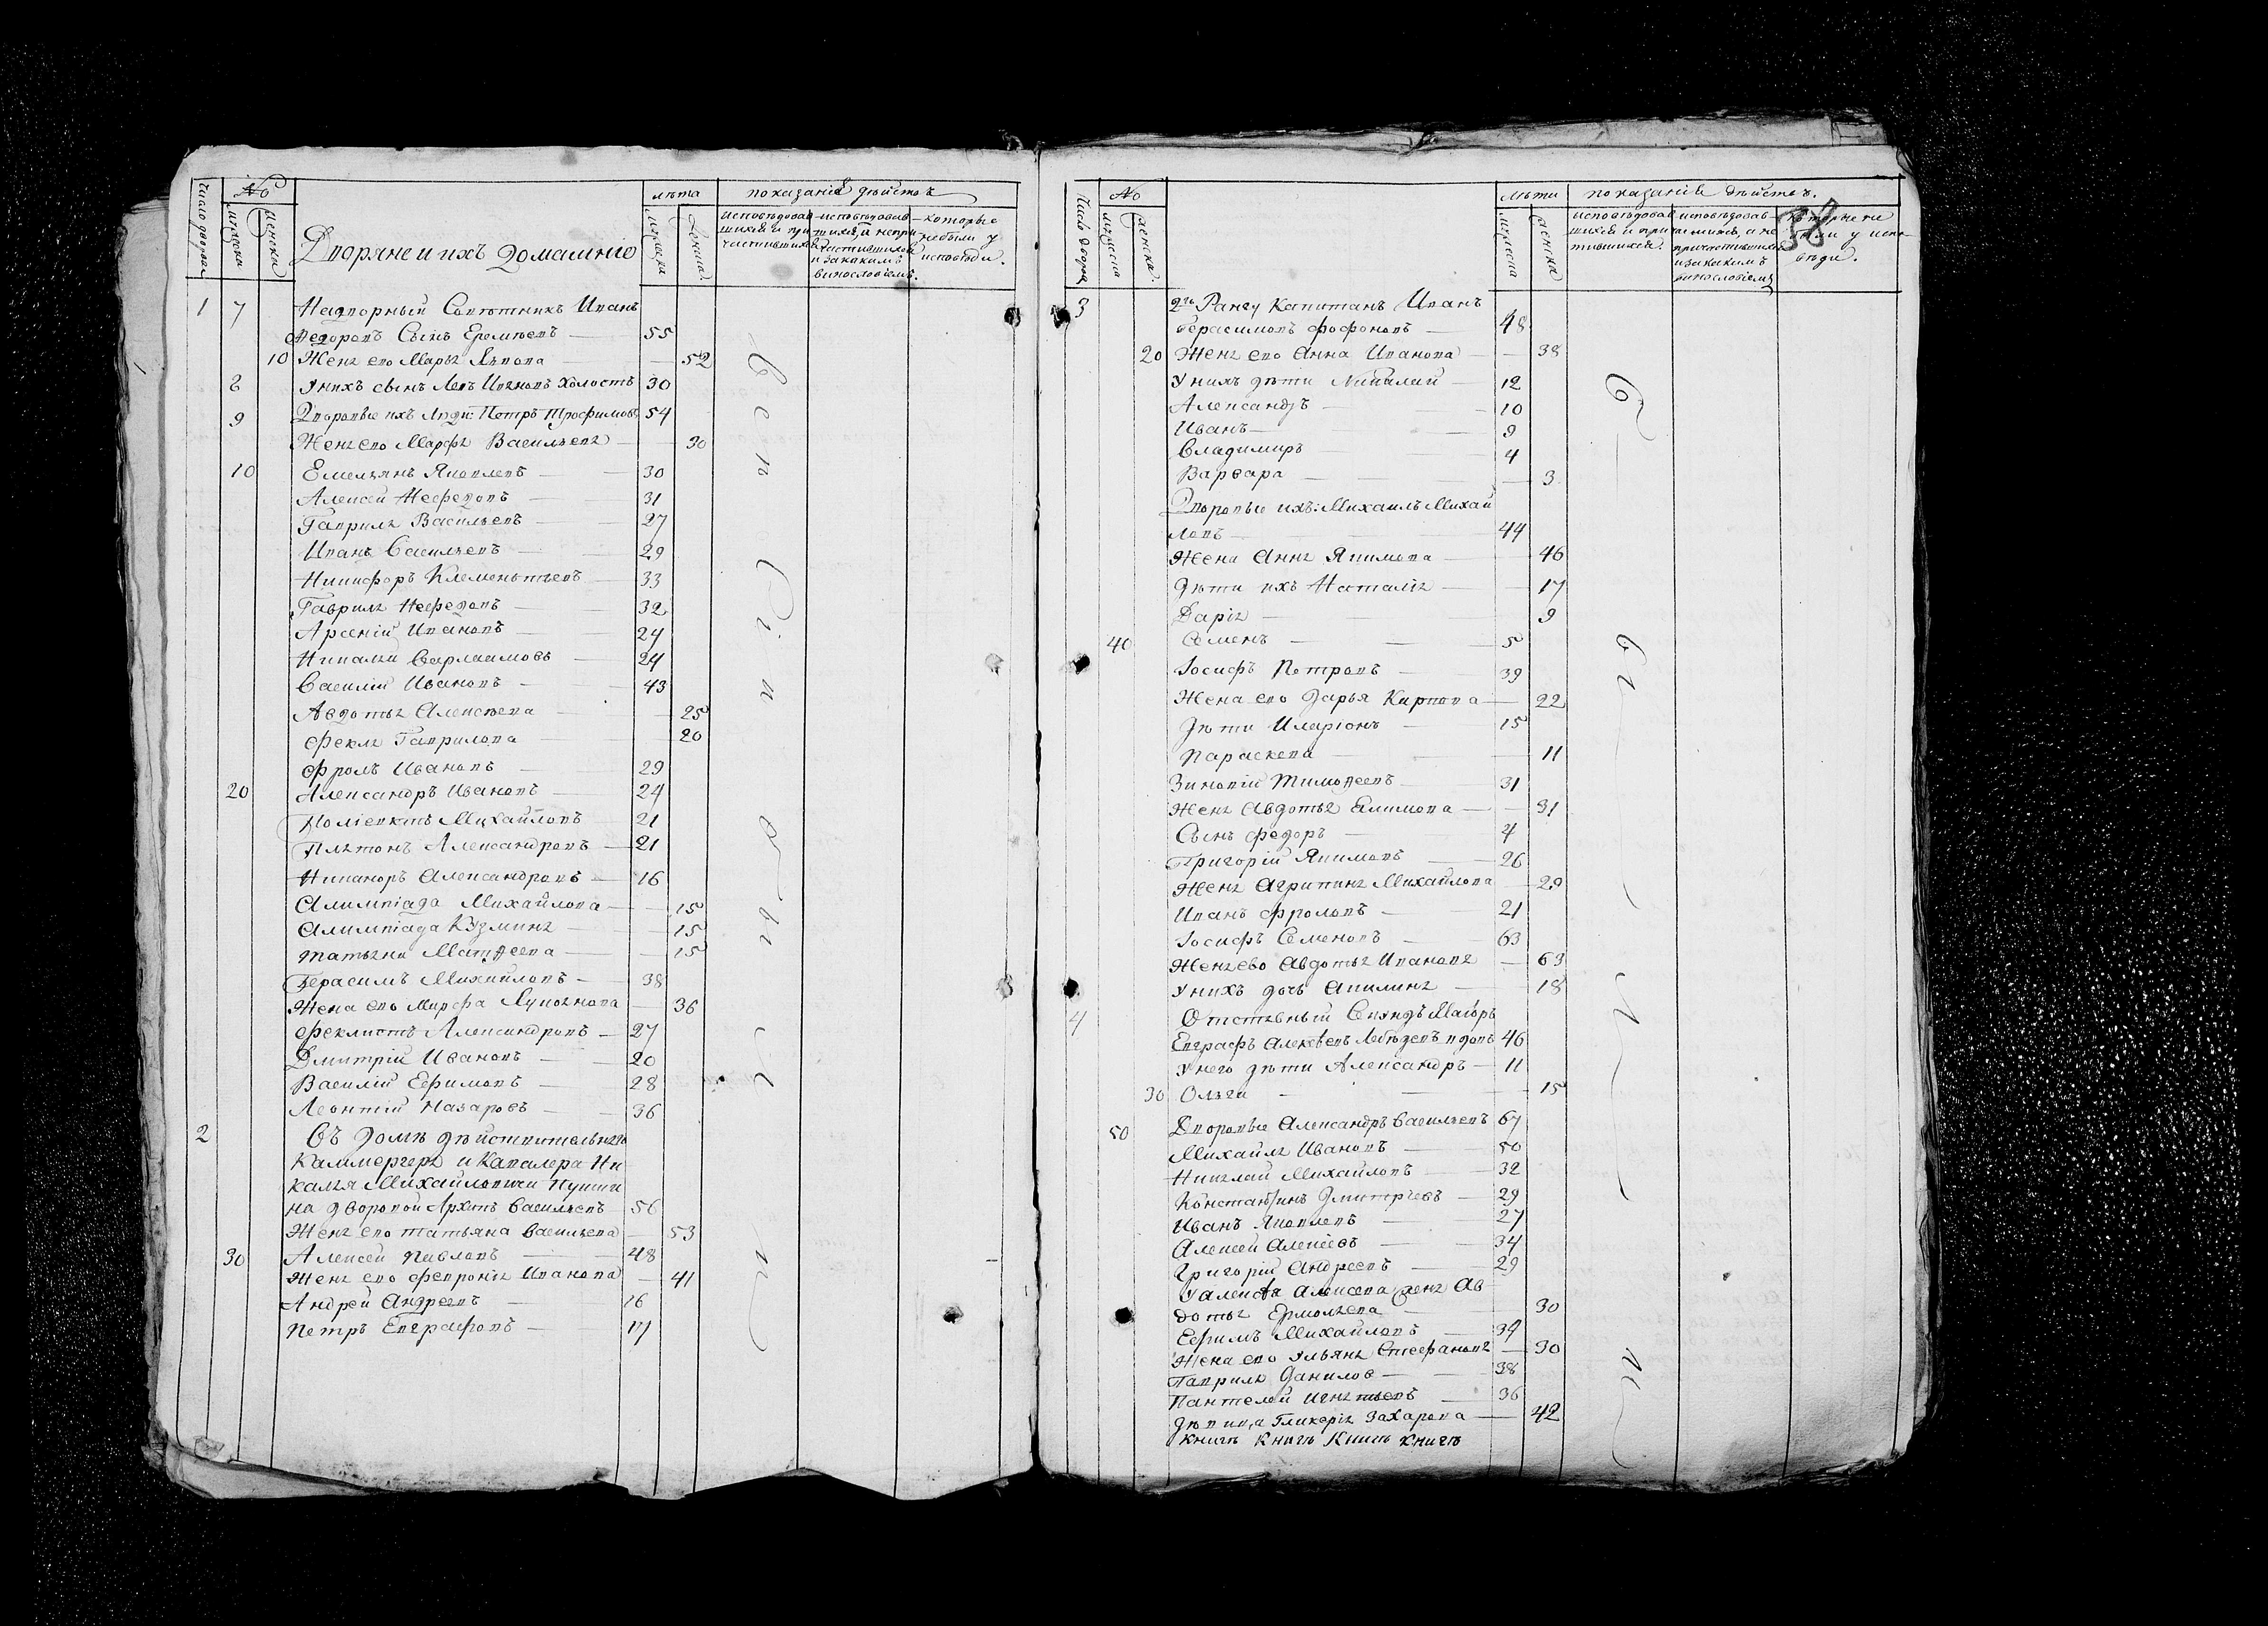 число дворовъ № мужеска женска Дворяне и ихъ домашніе лѣта мужска женска показаніе дѣйствъ
исповѣдовавшихся и причастившихся исповѣдовавшихся, и непричастившихся и за какимъ винословіемъ. которые небыли у исповѣди.
1 7 Надворный Совѣтникъ Иванъ
Ѳедоровъ Сынъ Еремѣевъ — 55
10 Жена его Марья Львова — 52
8 У нихъ сынъ Левъ Ивановъ Холостъ 30
9 Дворовые ихъ люди: Петръ Трофимовъ 54
Жена его Марфа Васильева — 30
10 Емельянъ Яковлевъ — 30
Алексей Нефедовъ — 31
Гаврила Васильевъ — 27
Иванъ Васильевъ — 29
Никифоръ Клементьевъ 33
Гаврила Нефедовъ — 32
Арсеній Ивановъ — 24
Николай Варлаамовъ — 24
Василій Ивановъ — 43
Авдотья Алексѣева — 25
Фекла Гаврилова — 20
Фролъ Ивановъ — 29
20 Александръ Ивановъ — 24
Поліевктъ Михайловъ 21
Платонъ Александровъ — 21
Никаноръ Александровъ — 16
Алимпіада Михайлова — 15
Алимпіада Кузмина — 15
Татьяна Матѳеева — 15
Герасимъ Михайловъ — 38
Жена его Марфа Лукоянова — 36
Феклистъ Александровъ — 27
Дмитрій Ивановъ — 20
Василій Ефимовъ — 28
Леонтій Назаровъ — 36
2 Въ домѣ дѣйствительнаго
Каммергера и Кавалера Ни
колая Михайловича Пушки
на дворовой Архипъ Васильевъ 56
Жена его Татьяна Васильева — 53
30 Алексей Павловъ — 48
Жена его Февронія Иванова — 41
Андрей Андреевъ — 16
Петръ Евграфовъ — 17
Число двора № мужеска женска лѣта мужеска женска показаніе дѣйствъ.
исповѣдовавшихся и причастившихся. исповѣдовавшихся, а не причастившихся и за какимъ винословіемъ которые не были у исповѣди.
38
3 2го Рангу Капитанъ Иванъ
Герасимовъ Фофоновъ — 48
20 Жена его Анна Иванова — 38
У нихъ дѣти Николай — 12
Александръ — 10
Иванъ — 9
Владимиръ — 4
Варвара — 3
Дворовые ихъ: Михаилъ Михай
ловъ — 44
Жена Анна Якимова — 46
Дѣти ихъ Наталія — 17
Дарія — 9
40 Семенъ — 5
Іосифъ Петровъ — 39
Жена его Дарья Карпова — 22
Дѣти Иларіонъ — 15
Параскева — 11
Зиновій Тимоѳеевъ — 31
Жена Авдотья Екимова — 31
Сынъ Федоръ — 4
Григорій Якимовъ — 26
Жена Агрипина Михайлова — 29
Иванъ Фроловъ — 21
Іосифъ Семеновъ — 63
Жена ево Авдотья Иванова — 63
У нихъ дочь Акилина — 18
4 Отставный Секундъ Маіоръ
Евграфъ Алексѣевъ Лебѣдевъ вдовъ 46
У него дѣти Александръ — 11
30 Ольга — 15
50 Дворовые Александръ Васильевъ 67
Михайла Ивановъ — 50
Николай Михайловъ — 32
Константинъ Дмитріевъ — 29
Иванъ Яковлевъ — 27
Алексей Алексѣевъ — 34
Григорій Андреевъ — 29
У Алексѣя Алексѣева жена Ав
дотья Ермолаева — 30
Ефимъ Михайловъ — 34
Жена его Ульяна Стефанова — 30
Гаврила Данилов — 38
Пантелей Игнатьевъ — 36
Дѣвица Гликерія Захарова — 42
книгъ книгъ книгъ книгъ